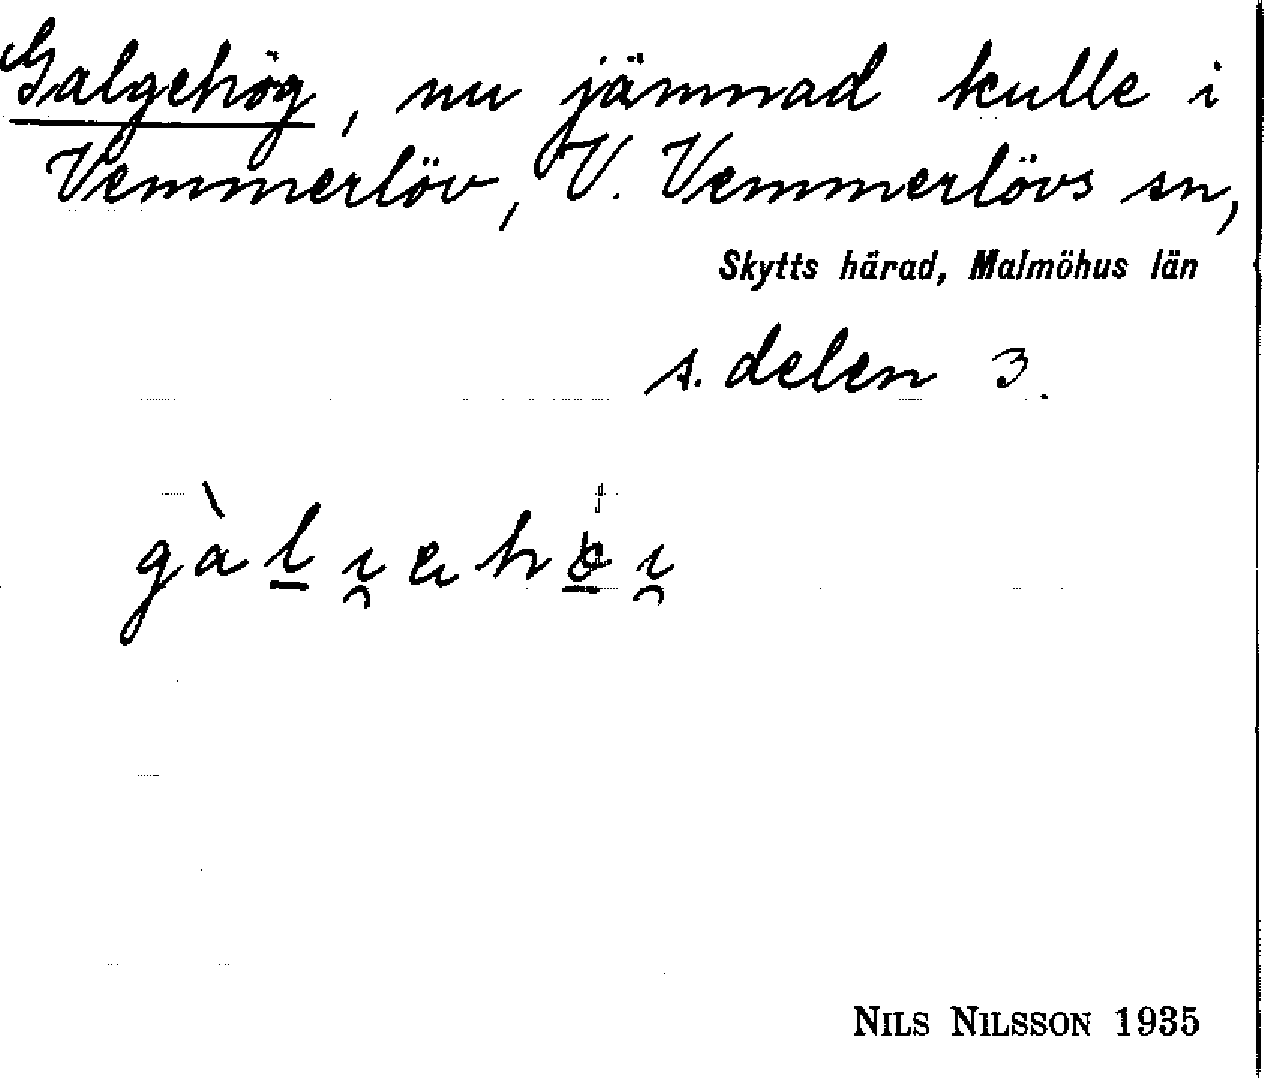 Galgehög, nu jämnad kulle i
Vemmerlöv, V. Vemmerlövs sn,
Skytts härad, Malmöhus län
s. delen 3.
NILS NILSSON 1935